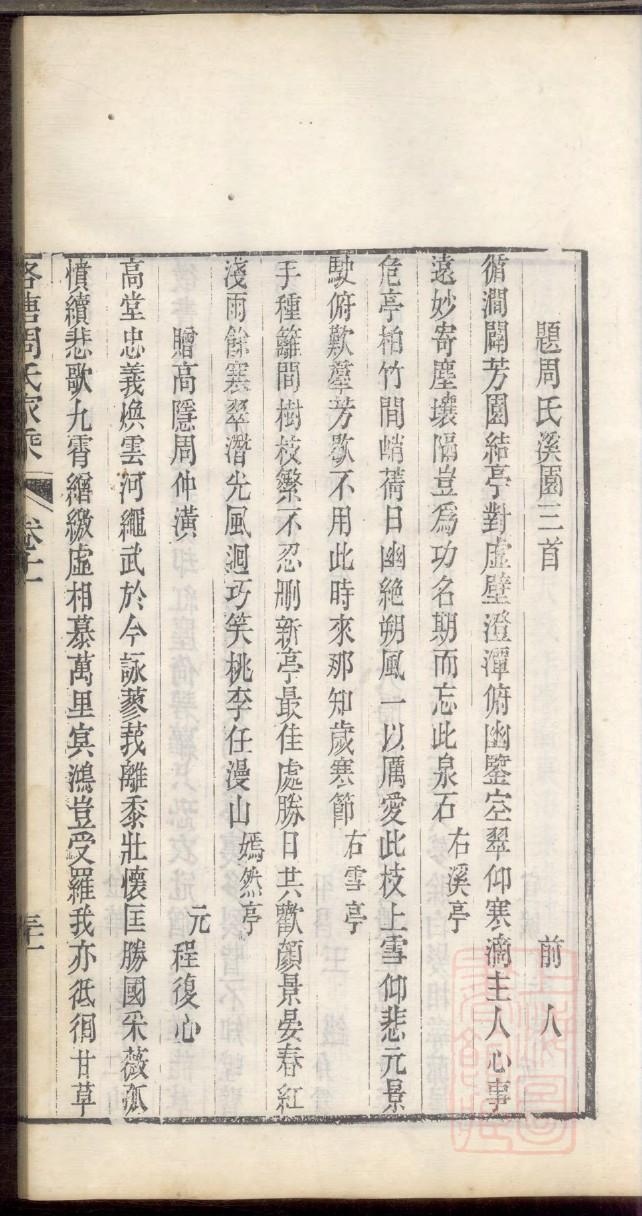 題周氏溪園三首 前人
循澗闢芳園結亭對虛壁澄潭俯幽鑒空翠仰寒滴主人心事
遠妙寄塵壤隔豈為功名期而忘此泉石 右溪亭
危亭柏竹間蛸蒨日幽絶朔風一以厲愛此枝上雪仰悲元景
駛俯歎羣芳歇不用此時來那知歲寒節 右雪亭
手種籬間樹枝繁不忍刪新亭最佳處勝日共歡顏景晏春紅
淺雨餘寒翠潛先風迴巧笑桃李任漫山 嫣然亭
贈高隱周仲潢 元 程復心
高堂忠義煥雲河繩武於今詠蓼莪離黍壯懷匡勝國采薇孤
憤續悲歌九霄繒繳虛相慕萬里㝠鴻豈受羅我亦徘徊甘草
周氏家乘 卷十一